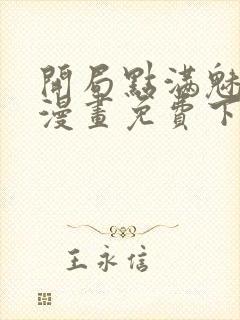 開局點滿魅
漫畫免費下
王永信